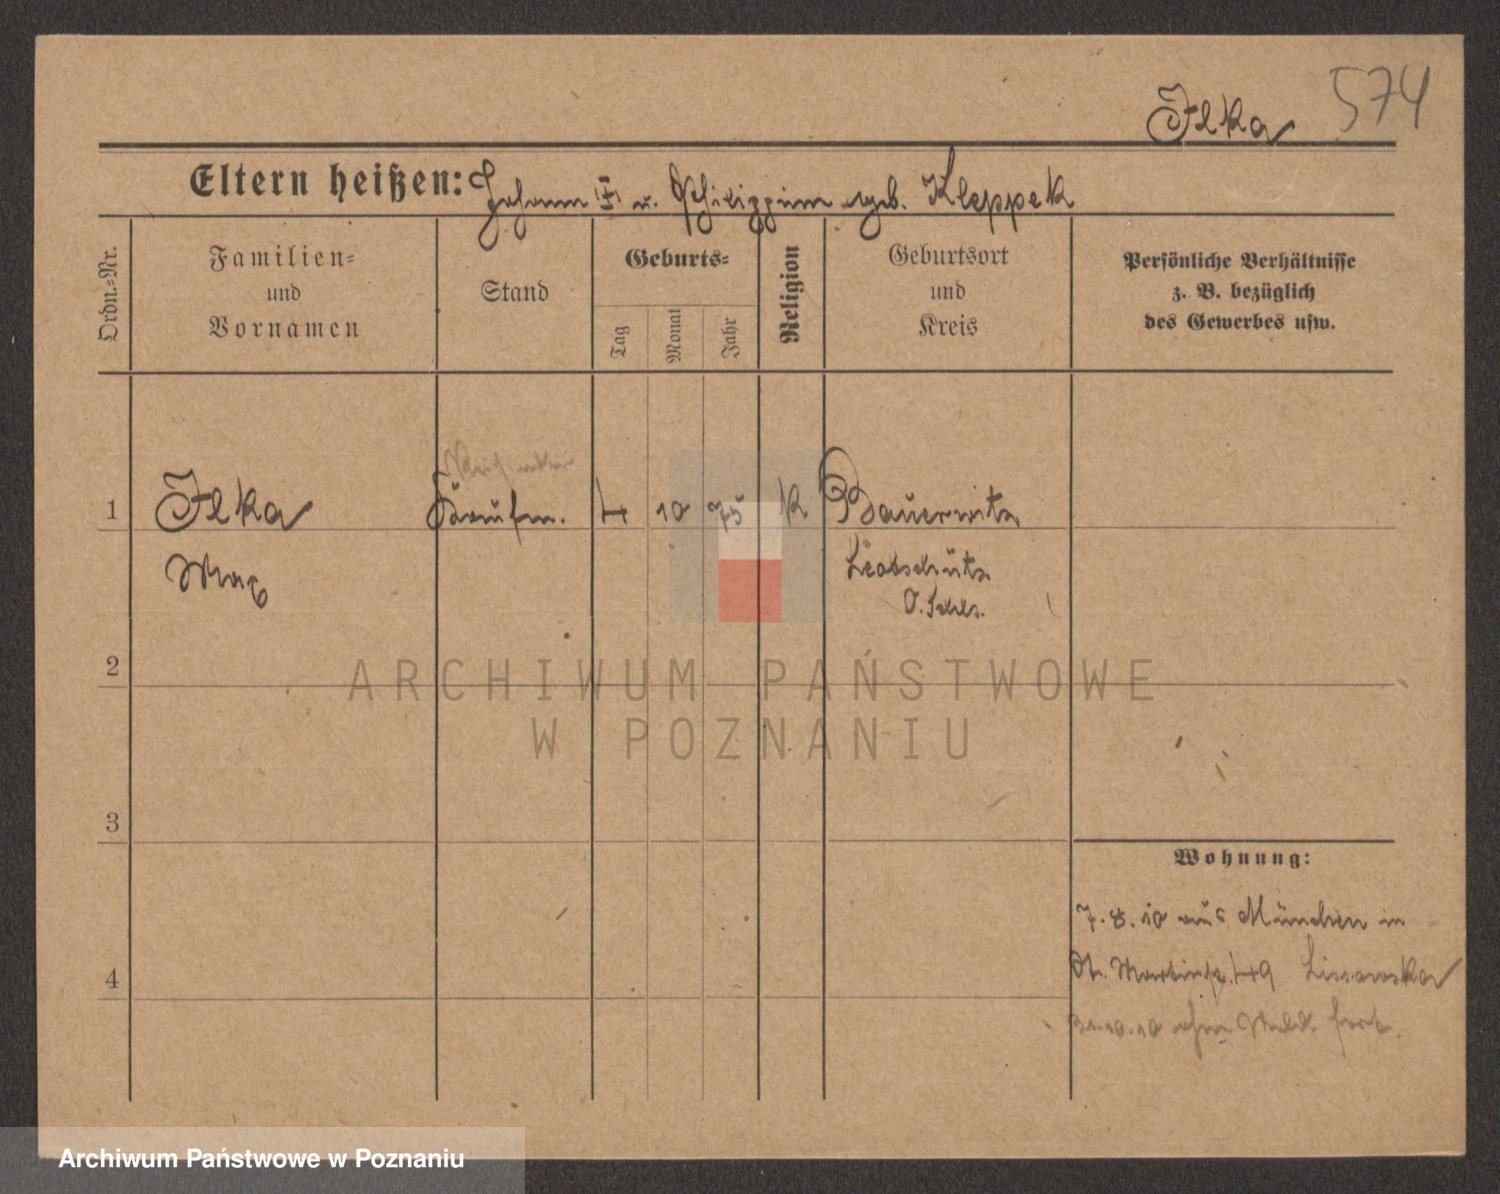 Ilka 574
Eltern heißen: Johann (†) u. Philippine geb. Kleppek
Ordn.-Nr.
Familien-
und
Vornamen
Stand
Geburts-
Tag
Monat
Jahr
Religion
Geburtsort
und
Kreis
Persönliche Verhältnisse
z. B. bezüglich
des Gewerbes usw.
1 Ilka Kaufm. 4 10 75 K Bauerwitz
Max Leobschütz
O. Schles.
2
ARCHIWUM PAŃSTWOWE
W POZNANIU
3
Wohnung:
7.8.10 aus München in
St. Martinstr. 49 Lissowska
4
31.10.10 ohne Meld. fort.
Archiwum Państwowe w Poznaniu